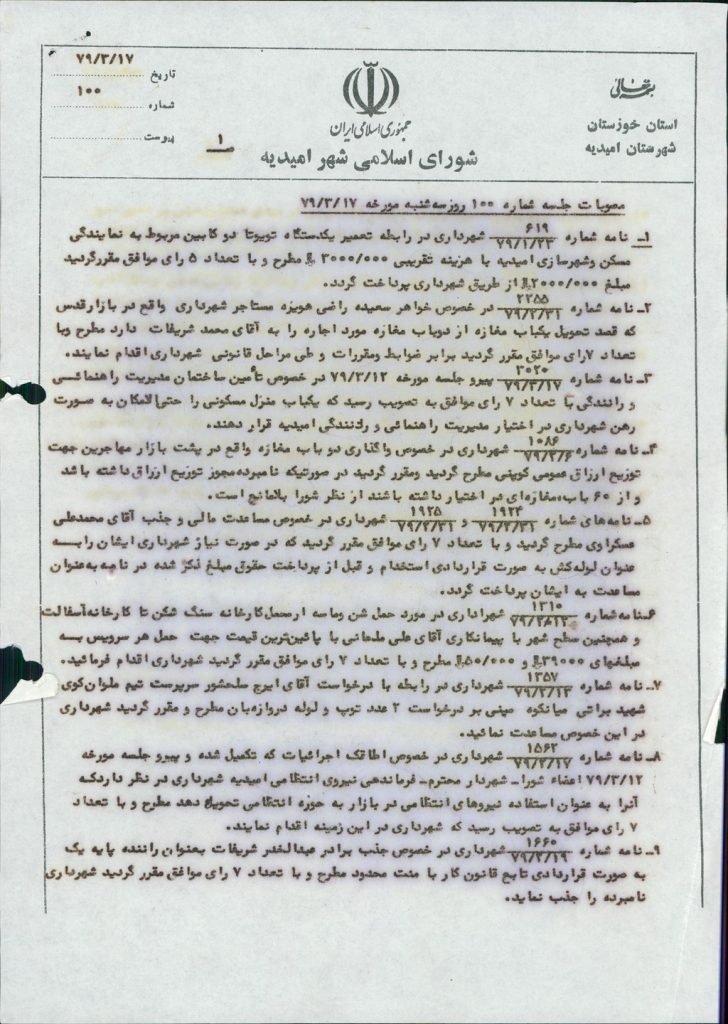 بسمه تعالی
استان خوزستان
شهرستان امیدیه
جمهوری اسلامی ایران
شورای اسلامی شهر امیدیه
تاریخ ۷۹/۳/۱۷
شماره ۱۰۰
پیوست ۱
مصوبات جلسه شماره ۱۰۰ روز سه شنبه مورخه ۷۹/۳/۱۷
۱ـ نامه شماره ۶۱۹ / ۷۹/۱/۲۳ شهرداری در رابطه تعمیر یکدستگاه تویوتا دو کابین مربوط به نمایندگی
مسکن وشهرسازی امیدیه با هزینه تقریبی ۳۰۰۰/۰۰۰ ریال مطرح و با تعداد ۵ رای موافق مقررگردید
مبلغ ۲۰۰۰/۰۰۰ ریال از طریق شهرداری پرداخت گردد.
۲ـ نامه شماره ۲۲۵۵ / ۷۹/۲/۳۱ در خصوص خواهر سعیده راضی هویزه مستاجر شهرداری واقع در بازارقدس
که قصد تحویل یکباب مغازه از دوباب مغازه مورد اجاره را به آقای محمد شریفات دارد مطرح وبا
تعداد ۷رای موافق مقرر گردید برابر ضوابط ومقررات و طی مراحل قانونی شهرداری اقدام نمایند.
۳ـ نامه شماره ۳۰۲۰ / ۷۹/۳/۱۷ پیرو جلسه مورخه ۷۹/۳/۱۲ در خصوص تأمین ساختمان مدیریت راهنمائی
و رانندگی با تعداد ۷ رای موافق به تصویب رسید که یکباب منزل مسکونی را حتی الامکان به صورت
رهن شهرداری در اختیار مدیریت راهنمائی و رانندگی امیدیه قرار دهند.
۴ـ نامه شماره ۱۰۸۶ / ۷۹/۳/۶ شهرداری در خصوص واگذاری دو باب مغازه واقع در پشت بازار مهاجرین جهت
توزیع ارزاق عمومی کوپنی مطرح گردید ومقرر گردید در صورتیکه نامبرده مجوز توزیع ارزاق داشته باشد
و از ۶۰ باب مغازه‌ای در اختیار داشته باشند از نظر شورا بلامانع است.
۵ـ نامه‌های شماره ۱۹۲۴ / ۷۹/۲/۳۱ و ۱۹۲۵ / ۷۹/۲/۳۱ شهرداری در خصوص مساعدت مالی و جذب آقای محمدعلی
عسکراوی مطرح گردید و با تعداد ۷ رای موافق مقرر گردید که در صورت نیاز شهرداری ایشان را به
عنوان لوله کش به صورت قراردادی استخدام و قبل از پرداخت حقوق مبلغ ذکر شده در نامه به عنوان
مساعدت به ایشان پرداخت گردد.
۶ـ نامه شماره ۱۳۱۰ شهراداری در مورد حمل شن وماسه ازمحل کارخانه سنگ شکن تا کارخانه آسفالت
و همچنین سطح شهر با پیمانکاری آقای علی با پائین‌ترین قیمت جهت حمل هر سرویس به
مبلغهای ۳۹۰۰۰ ریال و ۵۰/۰۰۰ ریال مطرح و با تعداد ۷ رای موافق مقرر گردید شهرداری اقدام فرمائید.
۷ـ نامه شماره ۱۳۵۷ / ۷۹/۳/۱۳ شهرداری در رابطه با درخواست آقای ایرج سرپرست تیم ملوان کوی
شهید براتی میانکوه مبنی بر درخواست ۲ عدد توپ و لوله دروازه‌بان مطرح و مقرر گردید شهرداری
در این خصوص مساعدت نمائید.
۸ـ نامه شماره ۱۵۶۲ / ۷۹/۳/۱۷ شهرداری در خصوص اطاقک اجرائیات که تکمیل شده و پیرو جلسه مورخه
۷۹/۳/۱۲ اعضاء شورا ـ شهردار محترم ـ فرماندهی نیروی انتظامی امیدیه شهرداری در نظر داردکه
آنرا به عنوان استفاده نیروهای انتظامی در بازار به حوزه انتظامی تحویل دهد مطرح و با تعداد
۷ رای موافق به تصویب رسید که شهرداری در این زمینه اقدام نمایند.
۹ـ نامه شماره ۱۶۶۰ / ۷۹/۳/۱۹ شهرداری در خصوص جذب برادر شریفات بعنوان راننده پایه یک
به صورت قراردادی تابع قانون کار با مدت محدود مطرح و با تعداد ۷ رای موافق مقرر گردید شهرداری
نامبرده را جذب نماید.